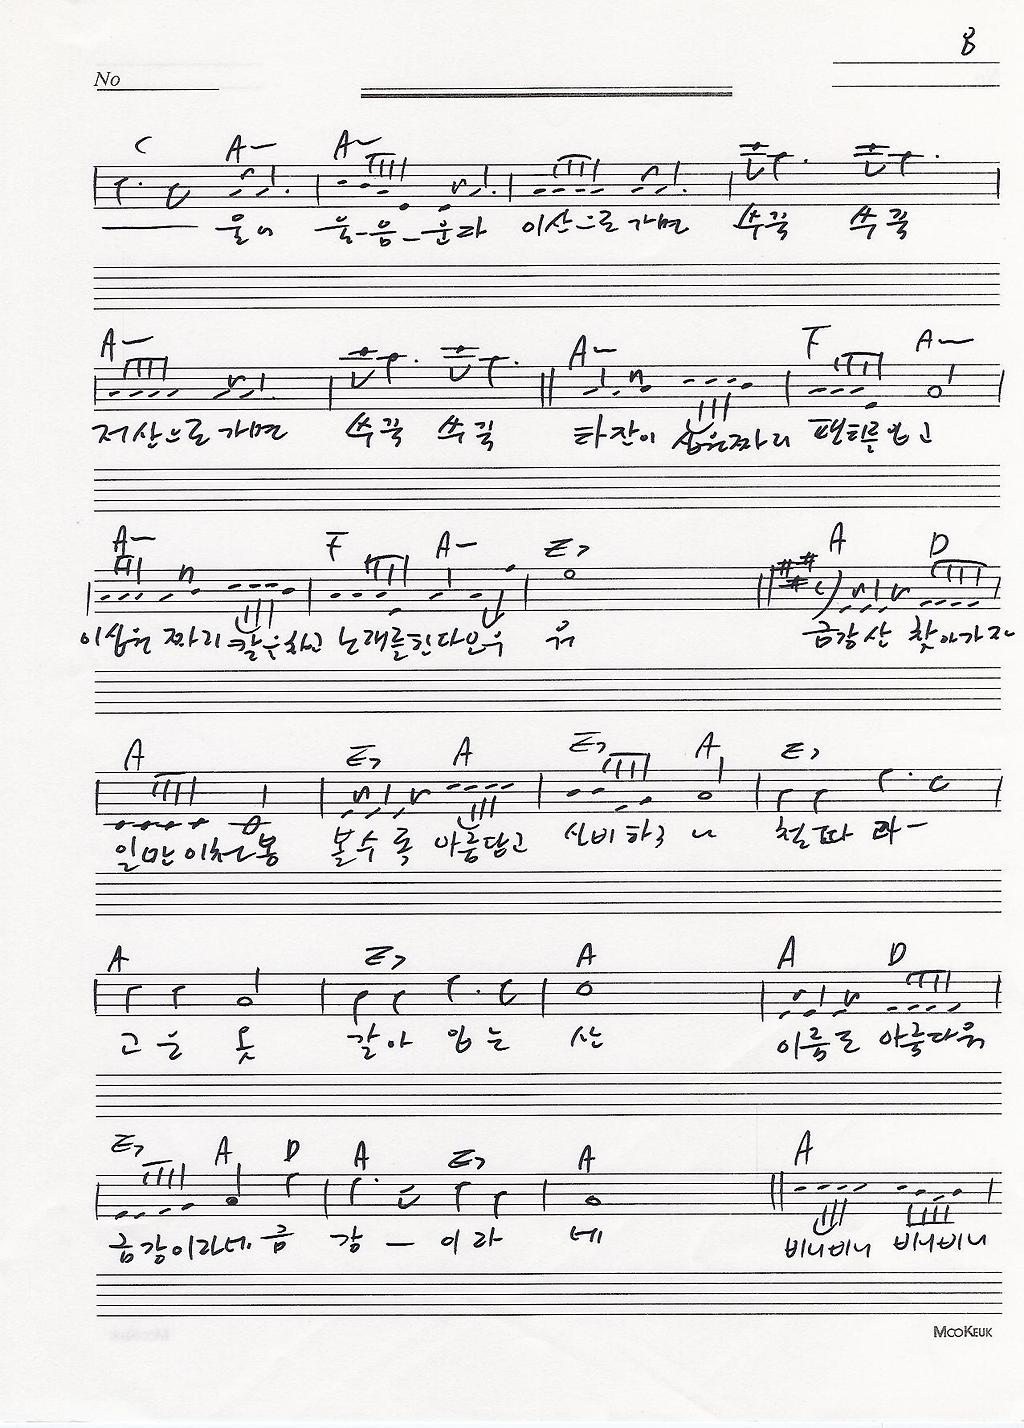 8
No
C A- A-
울어 울-음-운다 이산으로 가면 쑤꾹 쑤꾹
A- A- F A-
저산으로 가면 쑤꾹 쑤꾹 타잔이 십원짜리 팬티를 입고
A- F A- E7 A D
이십원 짜리 칼을차고 노래를한다 우
금강산 찾아가자
A E7 A E7 A E7
일만이천봉 볼수록 아름답고 신비하구나 철따라-
A E7 A A D
고운 옷 갈아 입는 산 이름도 아름다워
E7 A D A E7 A A
금강이라네 금 강 - 이라 네 비니비니 비니비니
MOOKEUK